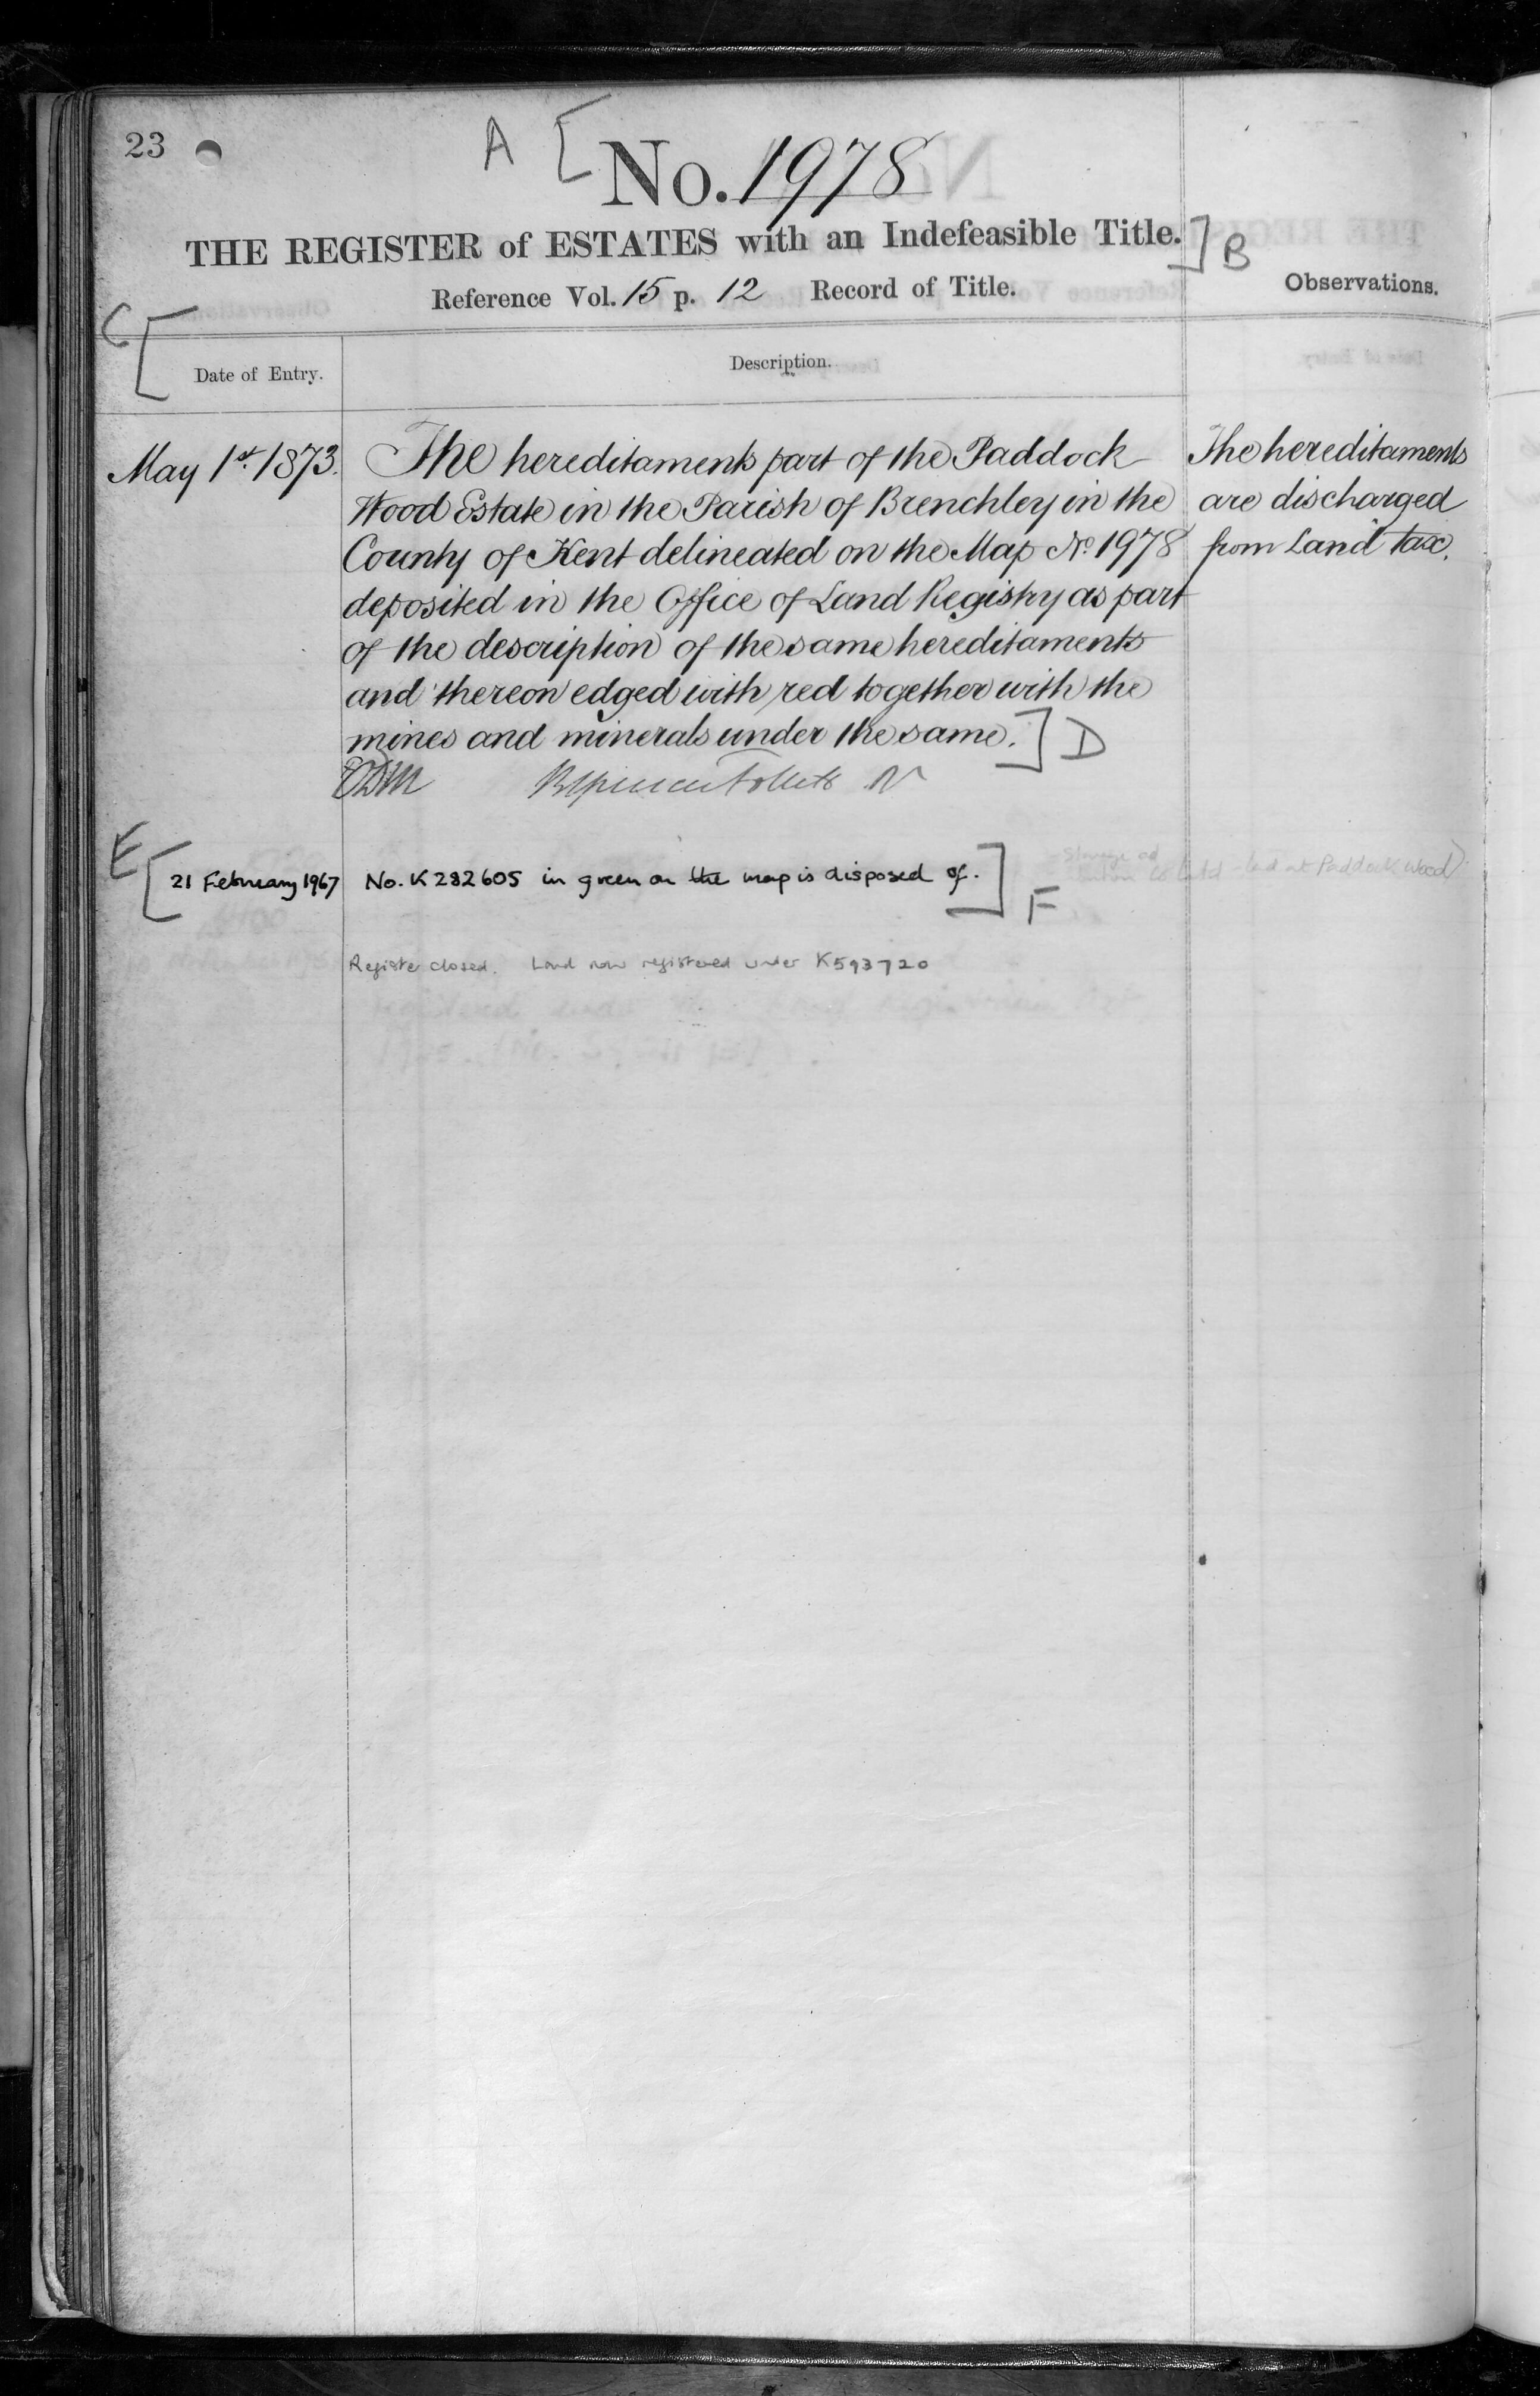 23
A [
No. 1978
THE REGISTER of ESTATES with an Indefeasible Title. ] B
Reference Vol. 15 p. 12 Record of Title.
Observations.
C [
Date of Entry.
Description.
May 1st. 1873.
The hereditaments part of the Paddock
Wood Estate in the Parish of Brenchley in the
County of Kent delineated on the Map No. 1978
deposited in the Office of Land Registry as part
of the description of the same hereditaments
and thereon edged with red together with the
mines and minerals under the same. ] D
The hereditaments
are discharged
from Land tax.
E [
21 February 1967 No. K 282605 in green on the map is disposed of. ] F
at Paddock Wood)
Register closed. Land now registered under K593720